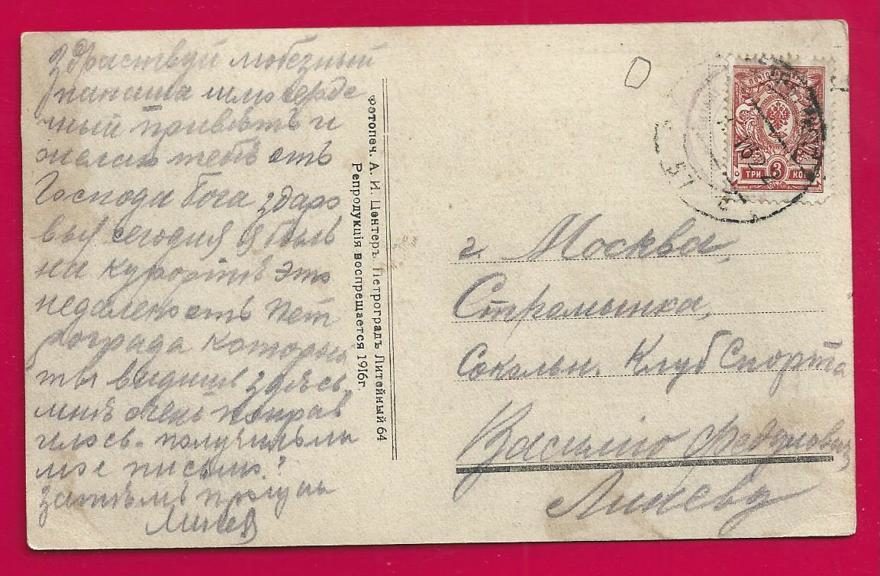 Здраствуй любезный
папаша шлю серде
чный привѣтъ и
желаю тебѣ отъ
Господа бога здаро
вья сегодня я былъ
на курортѣ это
недалеко отъ Пет
рограда которы
ты видишь здѣсь
мнѣ очень понрав
илось. получилъ ли
мое письмо?
затѣмъ
Линев
Фотопеч. А. И. Центеръ. Петроградъ Литейный 64
Репродукція воспрещается 1916г.
ТРИ 3 КОП
г. Москва,
Стромынка,
Сокольн. Клуб Спорта
Василию Федоровичу
Линеву